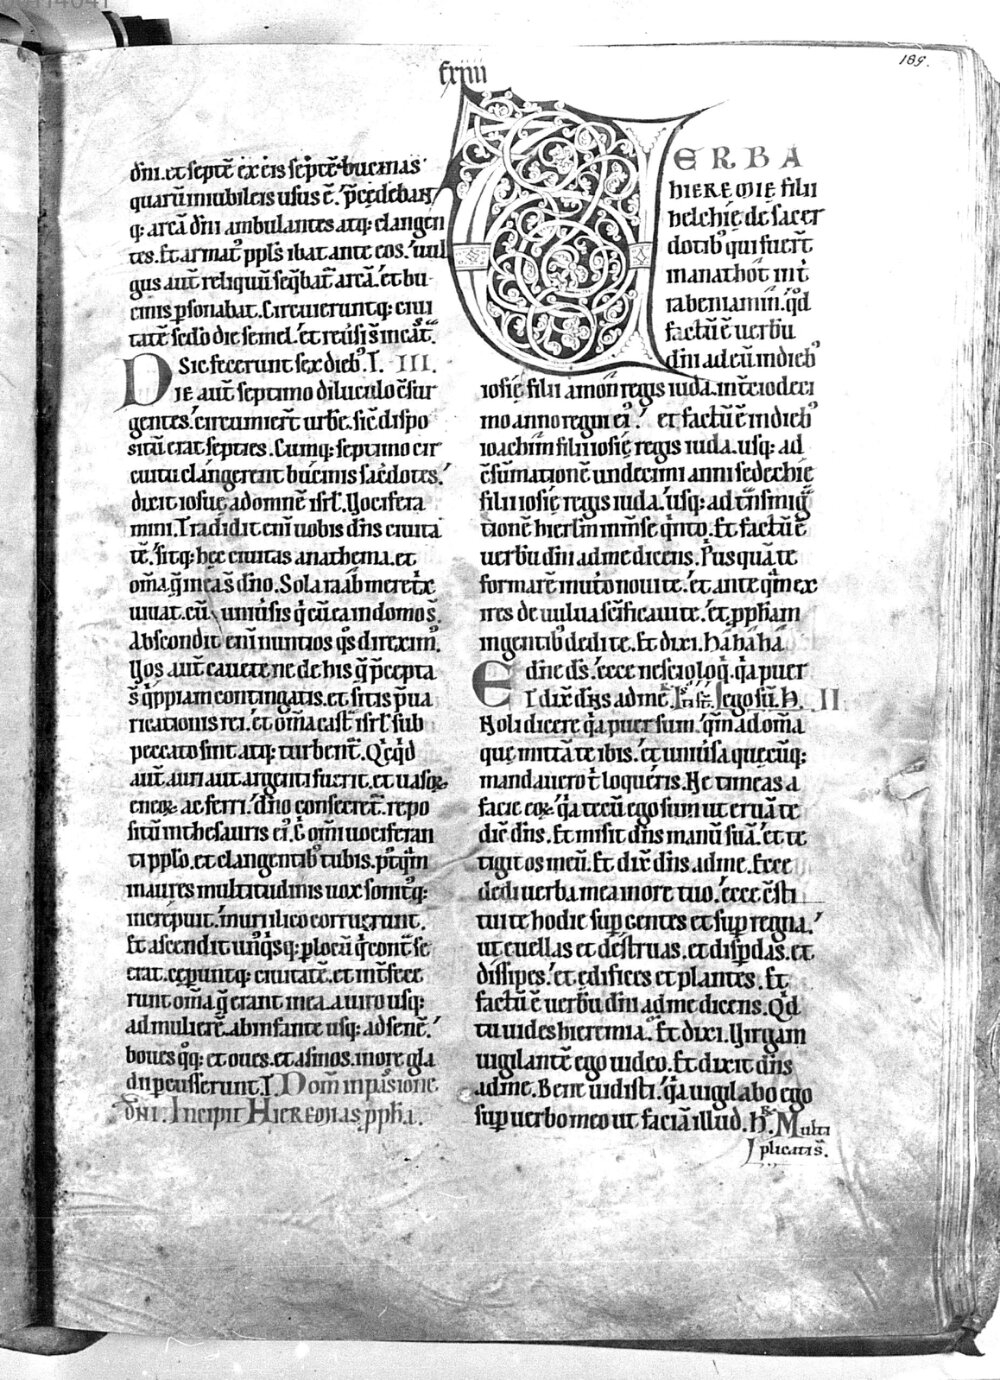 189.
fxiiii
dñi. et septē ex eis septē bucinas
quarū iniubileis usus ē. p̄cedebant
q: arcā dñi ambulantes atq: clangen
tes. Et armat᷒ ppl̄s ibat ante eos. uul
gus aut̄ reliquū seq̄bat̄ arcā. et bu
cinis ꝑsonabat. Circuieruntq: ciui
tatē sc̄do die semel. et reūsi s̄ in cast̄.
Sic fecerunt sex dieb᷒. I. III.
DIE aut̄ septimo diluculo c̄sur
gentes. circumier̄t urbē. sic̄ dispo
sitū erat septies. Cumq: septimo cir
cuitu clangerent bucinis sac̄dotes.
dixit iosue ad omnē isrl̄. Vocifera
mini. Tradidit eni uobis dñs ciuita
tē. sitq: hec ciuitas anathema. et
om̄a q̄ in ea s̄ dño. Sola raab meret̄x
uiuat. cū uniūsis q̄ cū ea in domo s̄.
Abscondit eni nuntios q̄s direxim᷒.
Vos aut̄ cauete ne de his q̄ p̄cepta
s̄ q̄ppiam contingatis. et sitis p̄ua
ricationis rei. et om̄a cast̄ isrl̄ sub
peccato sint atq: turbent̄. Qicq̄d
aut̄ auri aut argenti fuerit. et uasoꝝ
eneoꝝ ac ferri. dño consecret̄. repo
sitū in thesauris ei᷒. I. om̄i uociferan
ti pplo. et clangentib᷒ tubis. p᷒tq̄m
in aures multitudinis uox sonit᷒q:
increpuit. muri ilico corruerunt.
Et ascendit un᷒q̇sq: ꝑ locū q̇ cont̄ se
erat. cep̄untq: ciuitatē. et int̄fece
runt om̄a q̄ erant in ea. a uiro usq:
ad mulierē. ab infante usq: ad senē.
boues q̊q: et oues. et asinos. in ore gla
dii ꝑcusserunt. I. Dom̄ in passione
dñi. Incipit Hieremias ppħa.
VERBA
HIEREMIE filii
helchie. de sacer
dotib᷒ qui fuer̄t
in anathot in t̄
ra beniamin. q̊d
factū ē uerbū
dñi ad eū. in dieb᷒
iosie filii amon regis iuda. in t̄cio deci
mo anno regni ei᷒. et factū ē in dieb᷒
ioachim filii iosie regis iuda. usq: ad
c̄sūmationē undecimi anni sedechie
filii iosie regis iuda. usq: ad t̄nsmig̃
tionē hierl̄m in mse q̇nto. Et factū ē
uerbū dñi ad me dicens. Ṗusquā te
formarē in utō noui te. et ante q̄m ex
ires de uulua sc̄ificaui te. et ppħam
in gentib᷒ dedi te. Et dixi. ha ha ha
dñe ds̄. ecce nescio loq̇. q̇a puer
Et dix̄ dñs ad mē. ego sū. H. II
Noli dicere q̇a puer sum. q̄m ad om̄a
que mittā te ibis. et uniūsa quecūq:
mandauero t̄ loqueris. Ne timeas a
facie eoꝝ. q̇a tecū ego sum ut eruā te
dic̄ dñs. Et misit dñs manū suā. et te
tigit os meū. Et dix̄ dñs ad me. Ecce
dedi uerba mea in ore tuo. ecce c̄sti
tui te hodie suꝑ gentes et suꝑ regna.
ut euellas et destruas. et disꝑdas. et
dissipes. et edifices et plantes. Et
factū ē uerbū dñi ad me dicens. Q̇d
tu uides hieremia. Et dixi. Virgam
uigilantē ego uideo. Et dixit dñs
ad me. Bene uidisti. q̇a uigilabo ego
suꝑ uerbo meo ut faciā illud. H. Multi
plicatis̄.